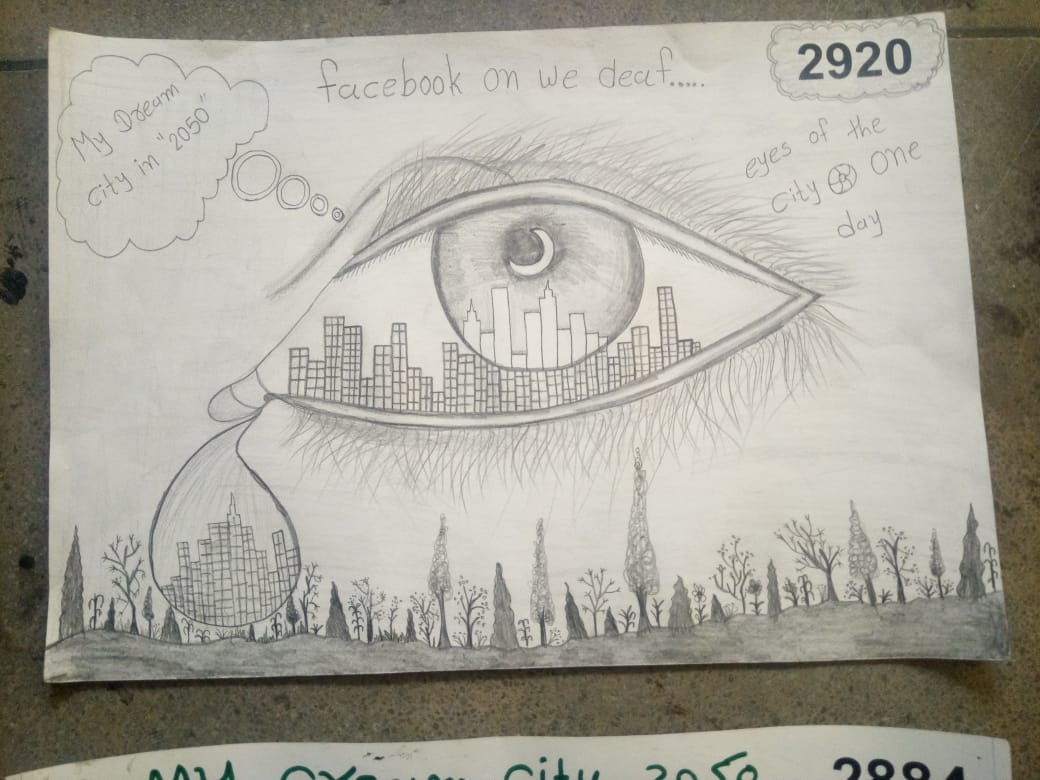 My Dream
city in "2050"
facebook on we deaf.....
2920
eyes of the
city One
day
My Dream City 2050 2884